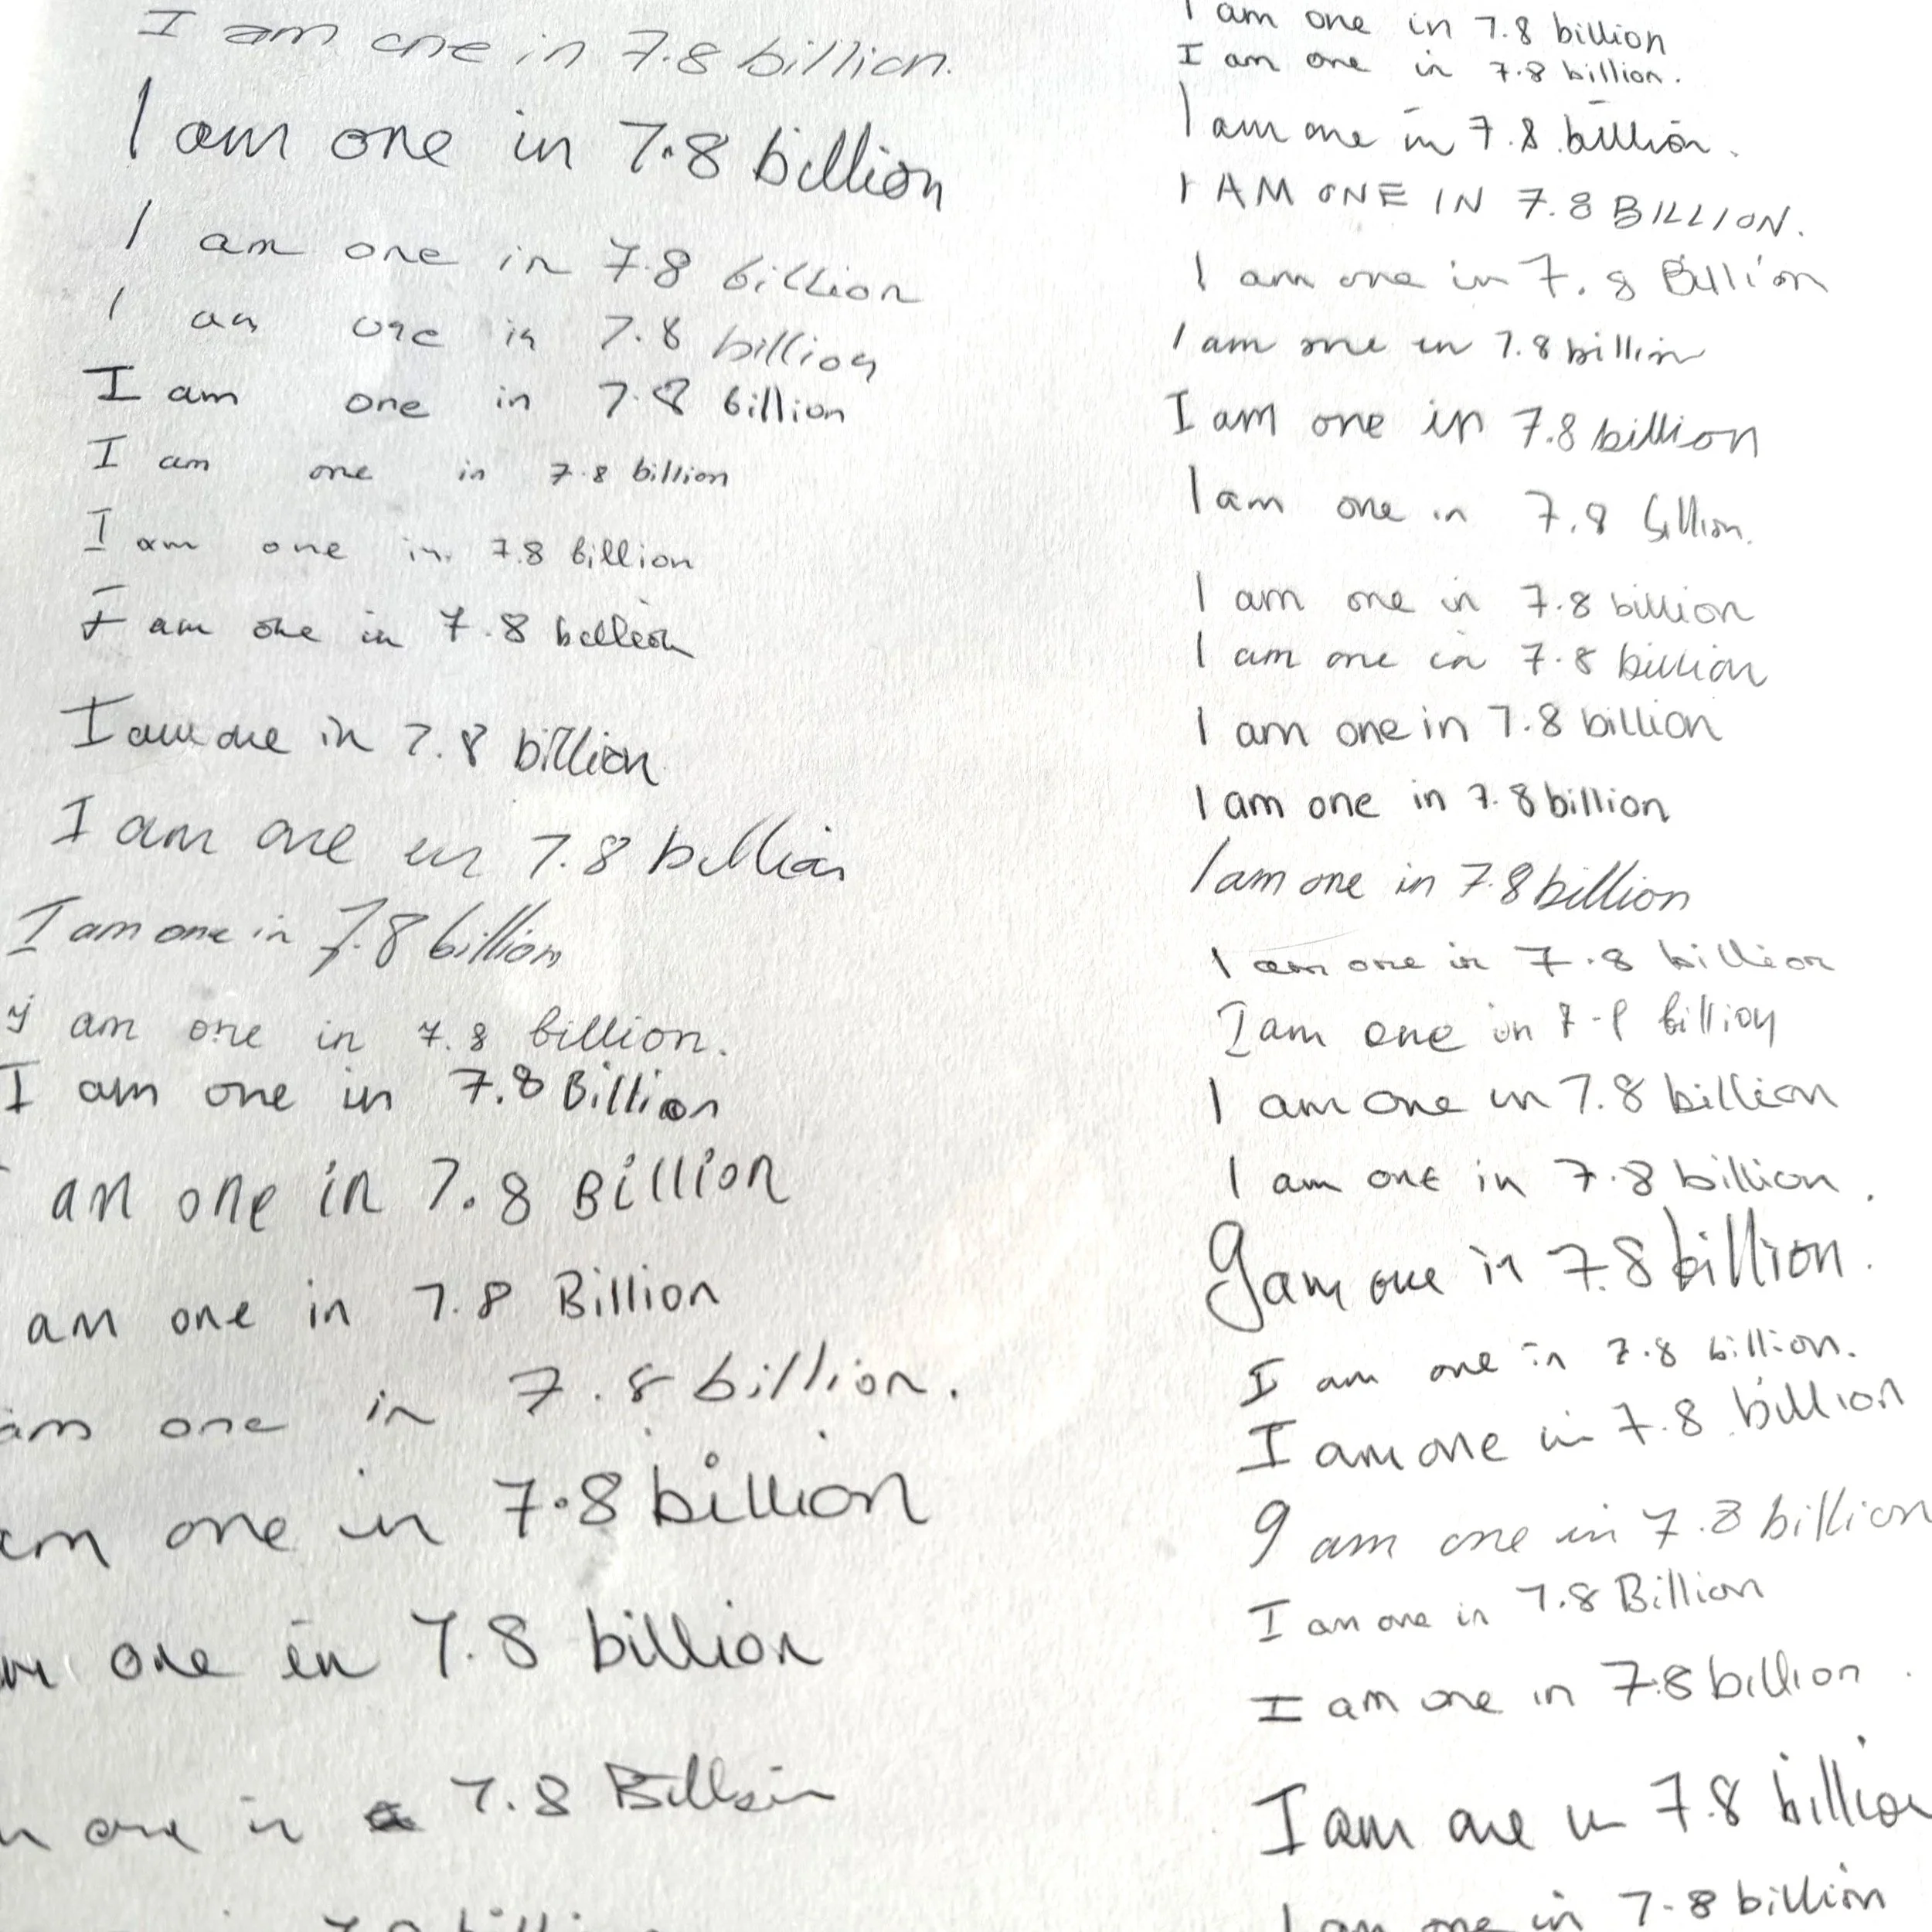 I am one in 7.8 billion.
I am one in 7.8 billion
I am one in 7.8 billion
I am one in 7.8 billion
I am one in 7.8 billion
I am one in 7.8 billion
I am one in 7.8 billion
I am one in 7.8 billion
I am one in 7.8 billion
I am one in 7.8 billion
I am one in 7.8 billion
I am one in 7.8 billion.
I am one in 7.8 Billion
am one in 7.8 Billion
am one in 7.8 Billion
am one in 7.8 billion.
am one in 7.8 billion
one in 7.8 billion
one in 7.8 Billion
I am one in 7.8 billion
I am one in 7.8 billion.
I am one in 7.8 billion.
I AM ONE IN 7.8 BILLION.
I am one in 7.8 Billion
I am one in 7.8 billion
I am one in 7.8 billion
I am one in 7.8 billion.
I am one in 7.8 billion
I am one in 7.8 billion
I am one in 7.8 billion
I am one in 7.8 billion
I am one in 7.8 billion
I am one in 7.8 billion
I am one in 7.8 billion
I am one in 7.8 billion
I am one in 7.8 billion.
I am one in 7.8 billion.
I am one in 7.8 billion.
I am one in 7.8 billion
I am one in 7.8 billion
I am one in 7.8 Billion
I am one in 7.8 billion.
I am one in 7.8 billion
I am one in 7.8 billion